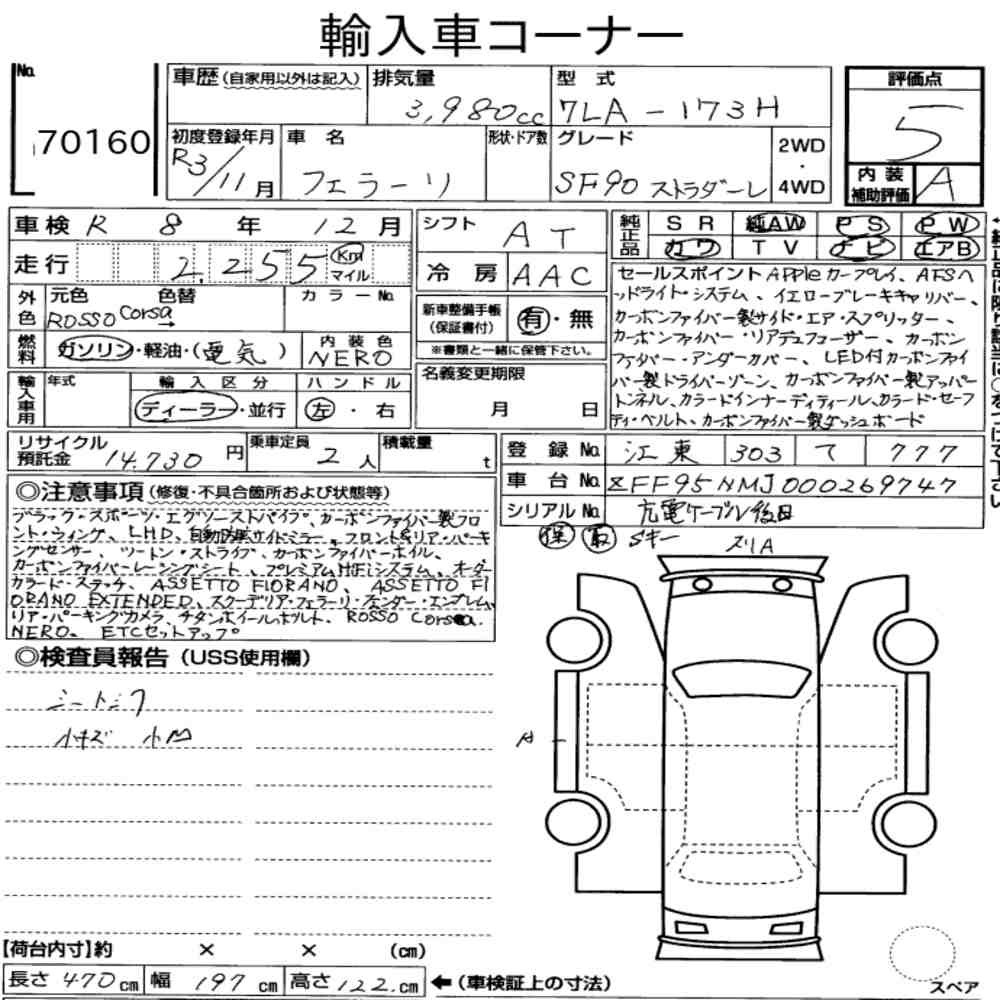 輸入車コーナー
No.
70160
車歴(自家用以外は記入)
排気量
3,980cc
型式
7LA-173H
評価点
5
初度登録年月
R3/11月
車名
フェラーリ
形状・ドア数
グレード
SF90 ストラダーレ
2WD
・
4WD
内装
補助評価
A
車検 R 8 年 12 月
走行 2,255 Km マイル
外色
元色
色替
ROSSO Corsa →
カラーNo.
燃料
ガソリン・軽油・(電気)
内装色
NERO
輸入車用
年式
輸入区分
ディーラー・並行
ハンドル
左・右
シフト
AT
冷房
AAC
新車整備手帳
(保証書付)
有・無
※書類と一緒に保管下さい。
名義変更期限
月 日
純正品
SR 純AW PS PW
カワ TV ナビ エアB
セールスポイント Apple カープレイ、AFSヘ
ッドライト・システム、イエローブレーキキャリパー、
カーボンファイバー製サイド・エア・スプリッター、
カーボンファイバー・リアデュフューザー、カーボン
ファイバー・アンダーカバー、LED付カーボンファイ
バー製ドライバーゾーン、カーボンファイバー製アッパー
トンネル、カラードインナーディティール、カラード・セーフ
ティ・ベルト、カーボンファイバー製ダッシュボード
リサイクル
預託金
14,730円
乗車定員
2人
積載量
t
登録No. 江東 303 て 777
車台No. ZFF95NMJ000269747
シリアルNo.
充電ケーブル後日
保 取 Sキー
◎注意事項(修復・不具合箇所および状態等)
ブラック・スポーツ・エグゾーストパイプ、カーボンファイバー製フロ
ント・ウィング、LHD、自動防眩サイドミラー、フロント&リア・パーキ
ングセンサー、ツートン・ストライプ、カーボンファイバーホイル、
カーボンファイバーレーシングシート、プレミアムHiFiシステム、オーダー
カラード・ステッチ、ASSETTO FIORANO、ASSETTO FI
ORANO EXTENDED、スクーデリア・フェラーリ・フェンダー・エンブレム、
リア・パーキングカメラ、チタンホイールボルト、ROSSO Corsa、
NERO。ETCセットアップ
◎検査員報告(USS使用欄)
シートシワ
小キズ 小凹
メリA
A
【荷台内寸】約 × × (cm)
長さ 470cm 幅 197cm 高さ 122.cm ←(車検証上の寸法)
スペア